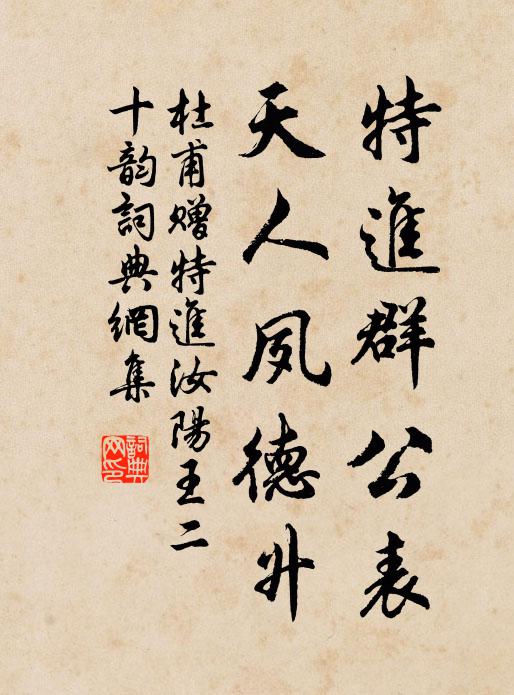 特進群公表
天人夙德升
杜甫贈特進汝陽王二
十韵詞典網集
詞典
网印